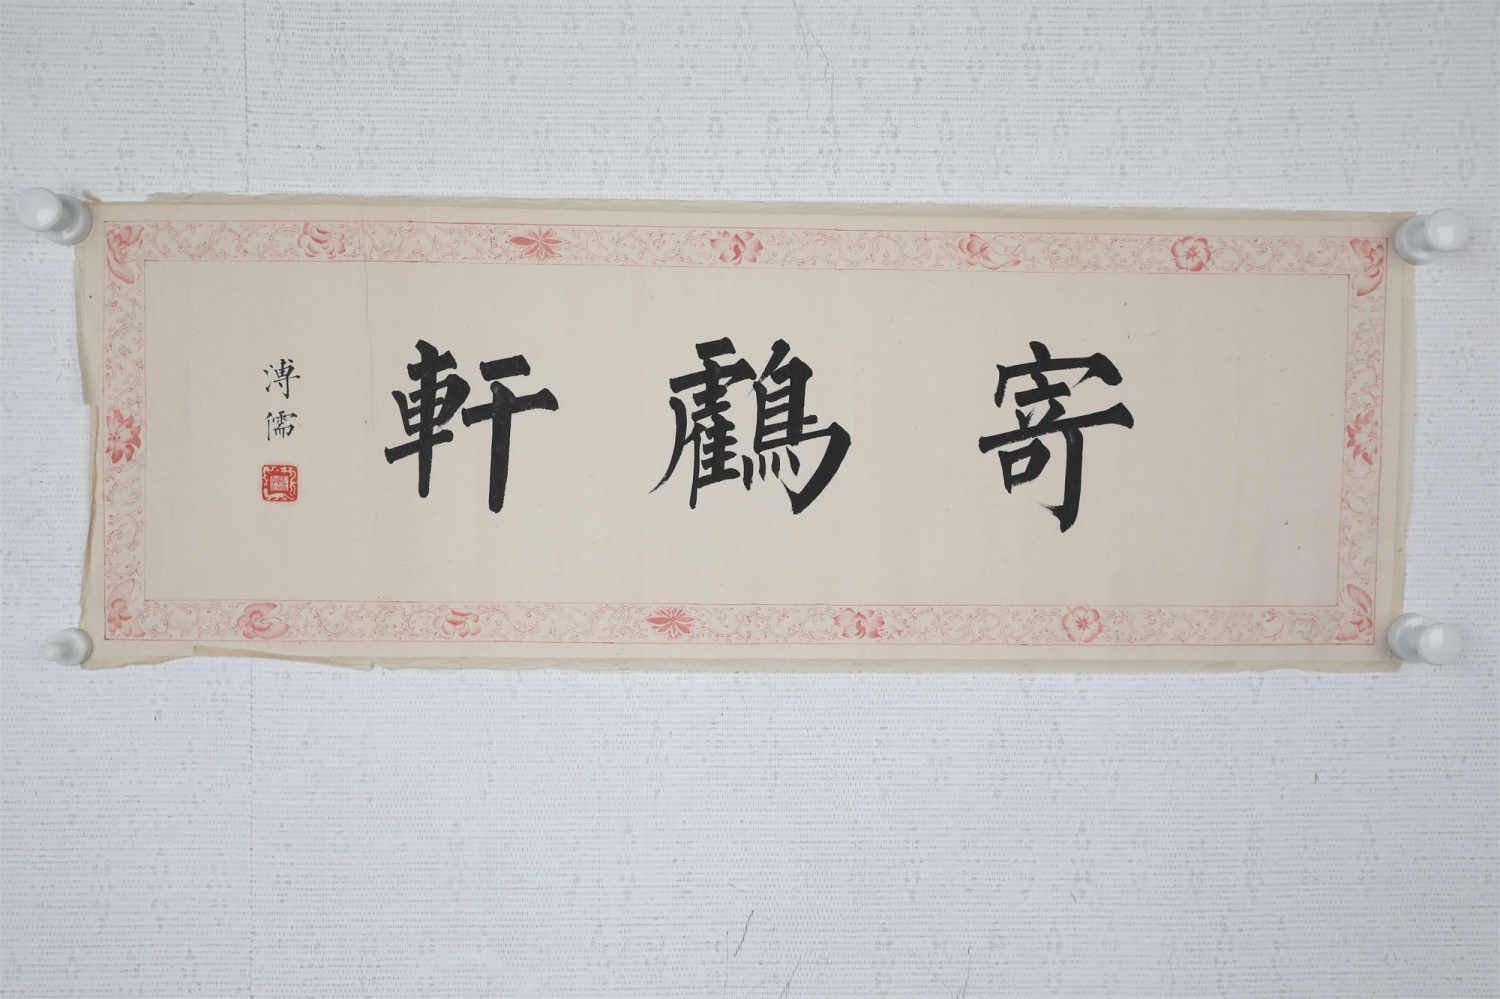 寄鸖軒
溥儒